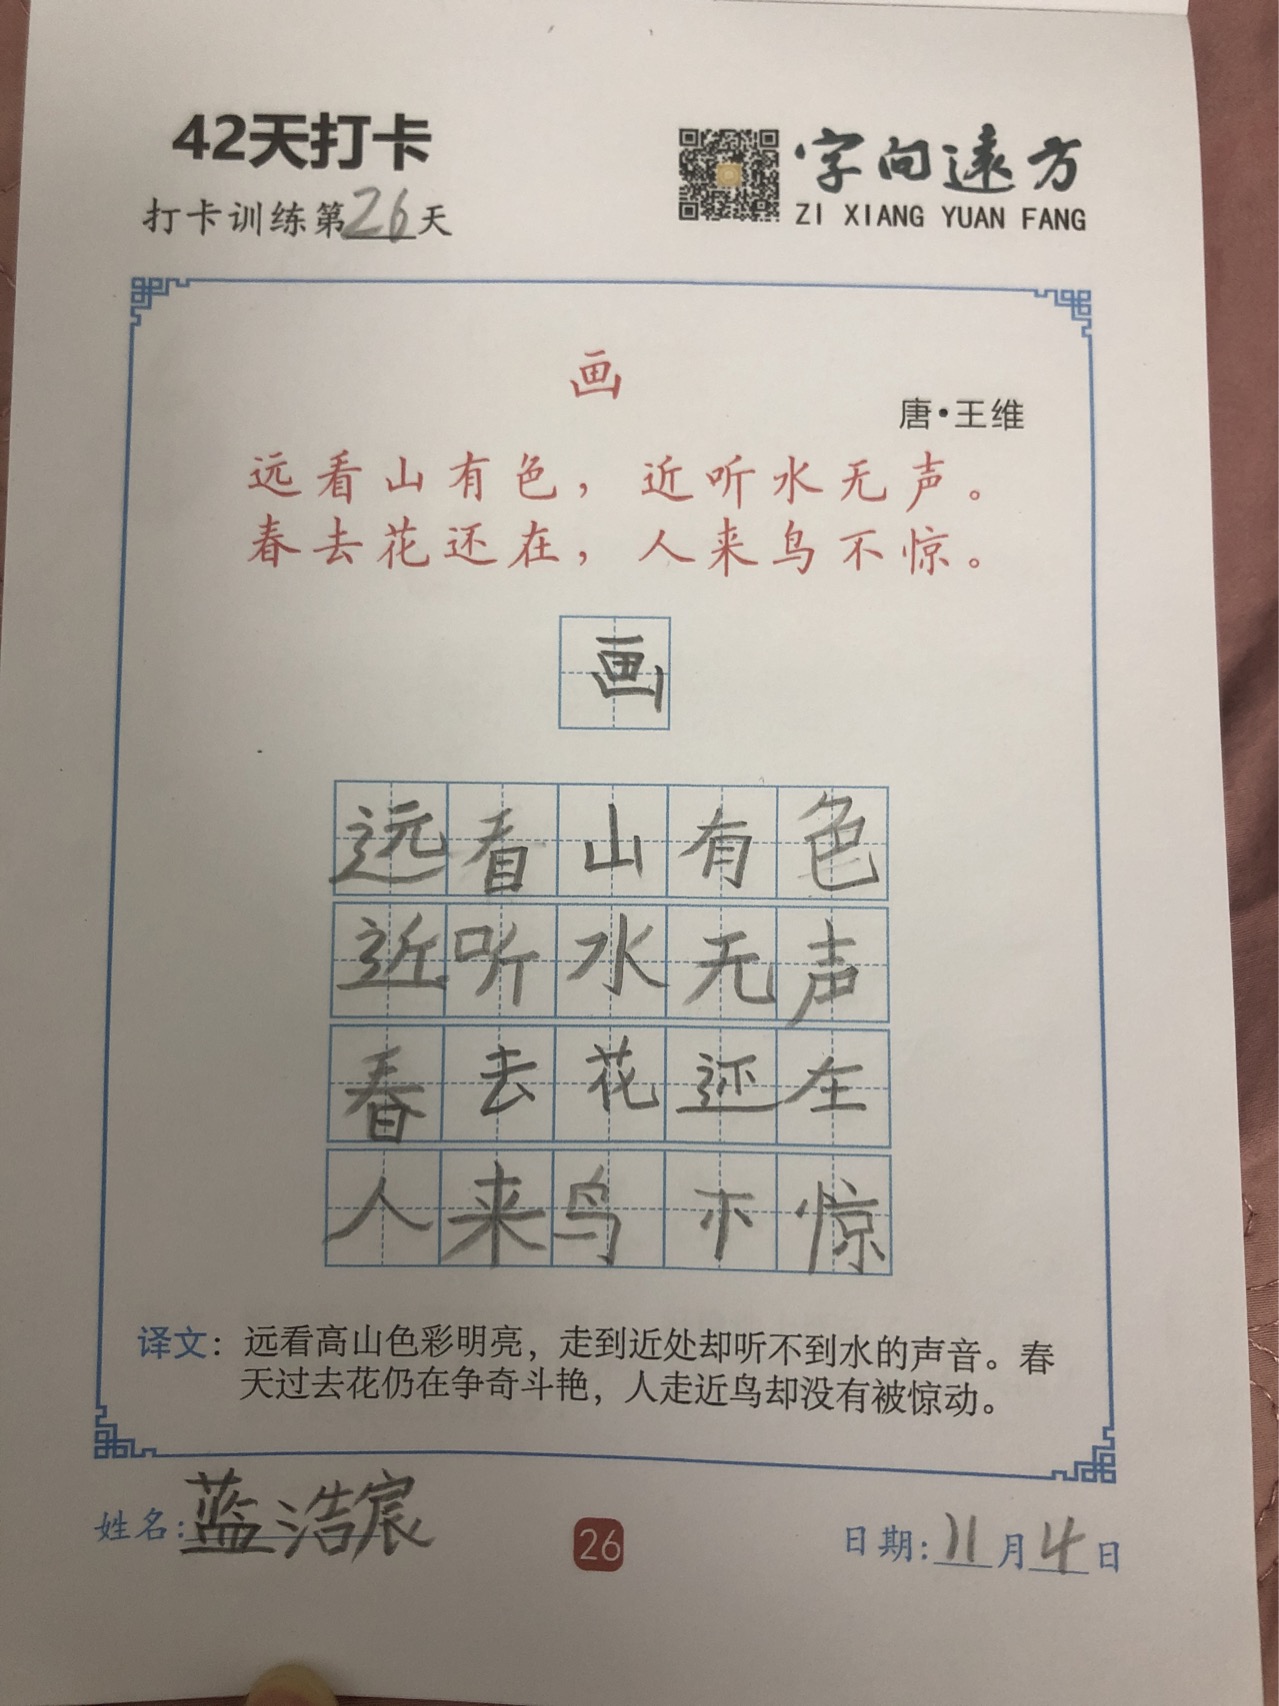 42天打卡
字向遠方
打卡训练第26天
ZI XIANG YUAN FANG
画
唐·王维
远看山有色，近听水无声。
春去花还在，人来鸟不惊。
画
远看山有色
近听水无声
春去花还在
人来鸟不惊
译文：远看高山色彩明亮，走到近处却听不到水的声音。春
天过去花仍在争奇斗艳，人走近鸟却没有被惊动。
姓名：蓝浩宸
26
日期：11月4日